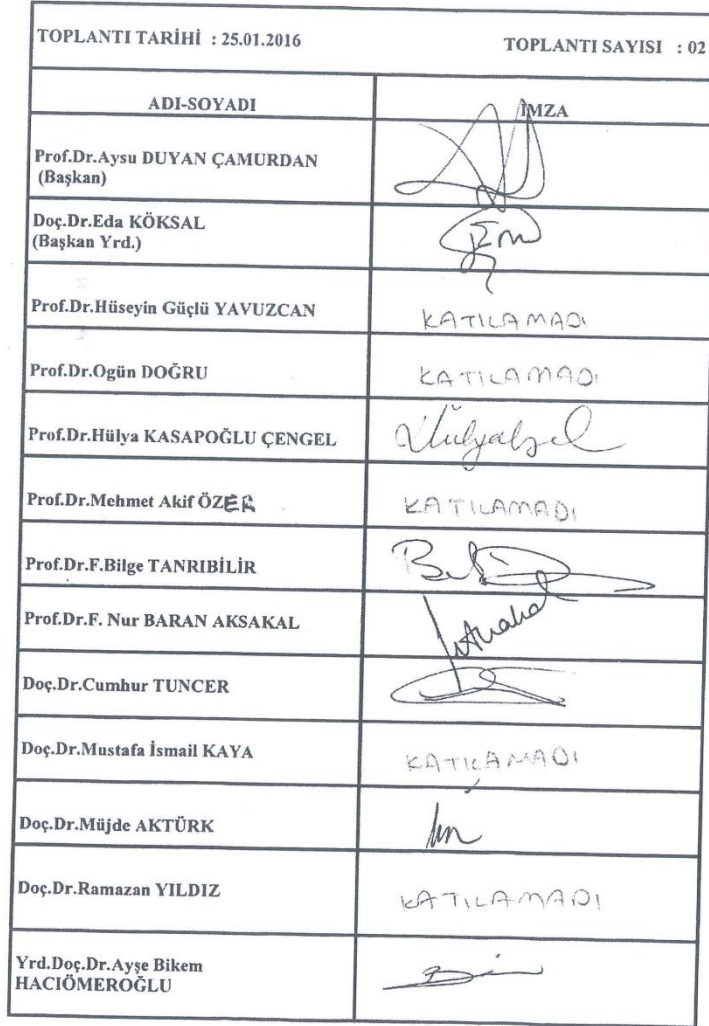 TOPLANTI TARİHİ : 25.01.2016 TOPLANTI SAYISI : 02
ADI-SOYADI İMZA
Prof.Dr.Aysu DUYAN ÇAMURDAN
(Başkan)
Doç.Dr.Eda KÖKSAL
(Başkan Yrd.)
Prof.Dr.Hüseyin Güçlü YAVUZCAN KATILAMADI
Prof.Dr.Ogün DOĞRU KATILAMADI
Prof.Dr.Hülya KASAPOĞLU ÇENGEL
Prof.Dr.Mehmet Akif ÖZER KATILAMADI
Prof.Dr.F.Bilge TANRIBİLİR
Prof.Dr.F. Nur BARAN AKSAKAL
Doç.Dr.Cumhur TUNCER
Doç.Dr.Mustafa İsmail KAYA KATILAMADI
Doç.Dr.Müjde AKTÜRK
Doç.Dr.Ramazan YILDIZ KATILAMADI
Yrd.Doç.Dr.Ayşe Bikem
HACIÖMEROĞLU